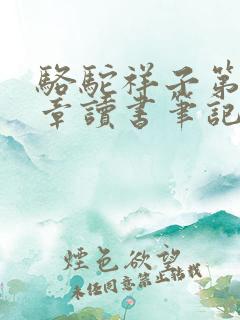 駱駝祥子第
章讀書筆記
煙色欲望
未經同意禁止轉載